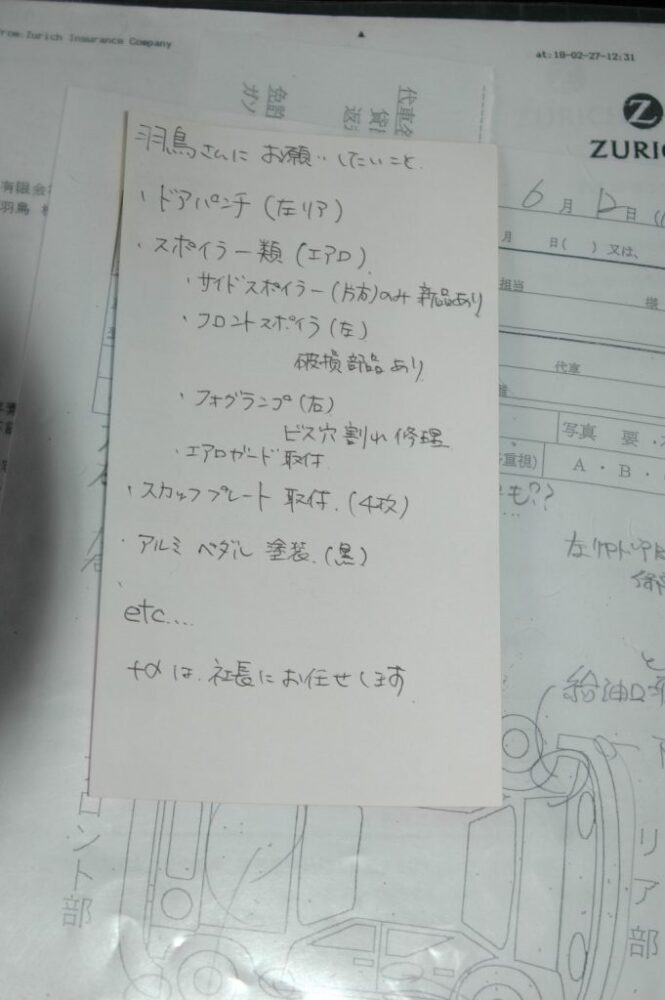 From:Zurich Insurance Company
at:18-02-27-12:31
ZURIC
代車名
免許
ガソ
有限会社
羽鳥
6月12日
月 日( )又は、
担当 様
代車
写真 要
重視) A・B・
も??
給油口
リア部
ロント部
羽鳥さんに お願いしたいこと
・ドアパンチ(左リア)
・スポイラー類(エアロ)
・サイドスポイラー(片方)のみ 新品あり
・フロントスポイラ(左)
破損部品あり
・フォグランプ(右)
ビス穴割れ修理
・エアロガード取付
・スカッフプレート取付.(4枚)
・アルミペダル塗装.(黒)
・
etc....
+αは.社長にお任せします